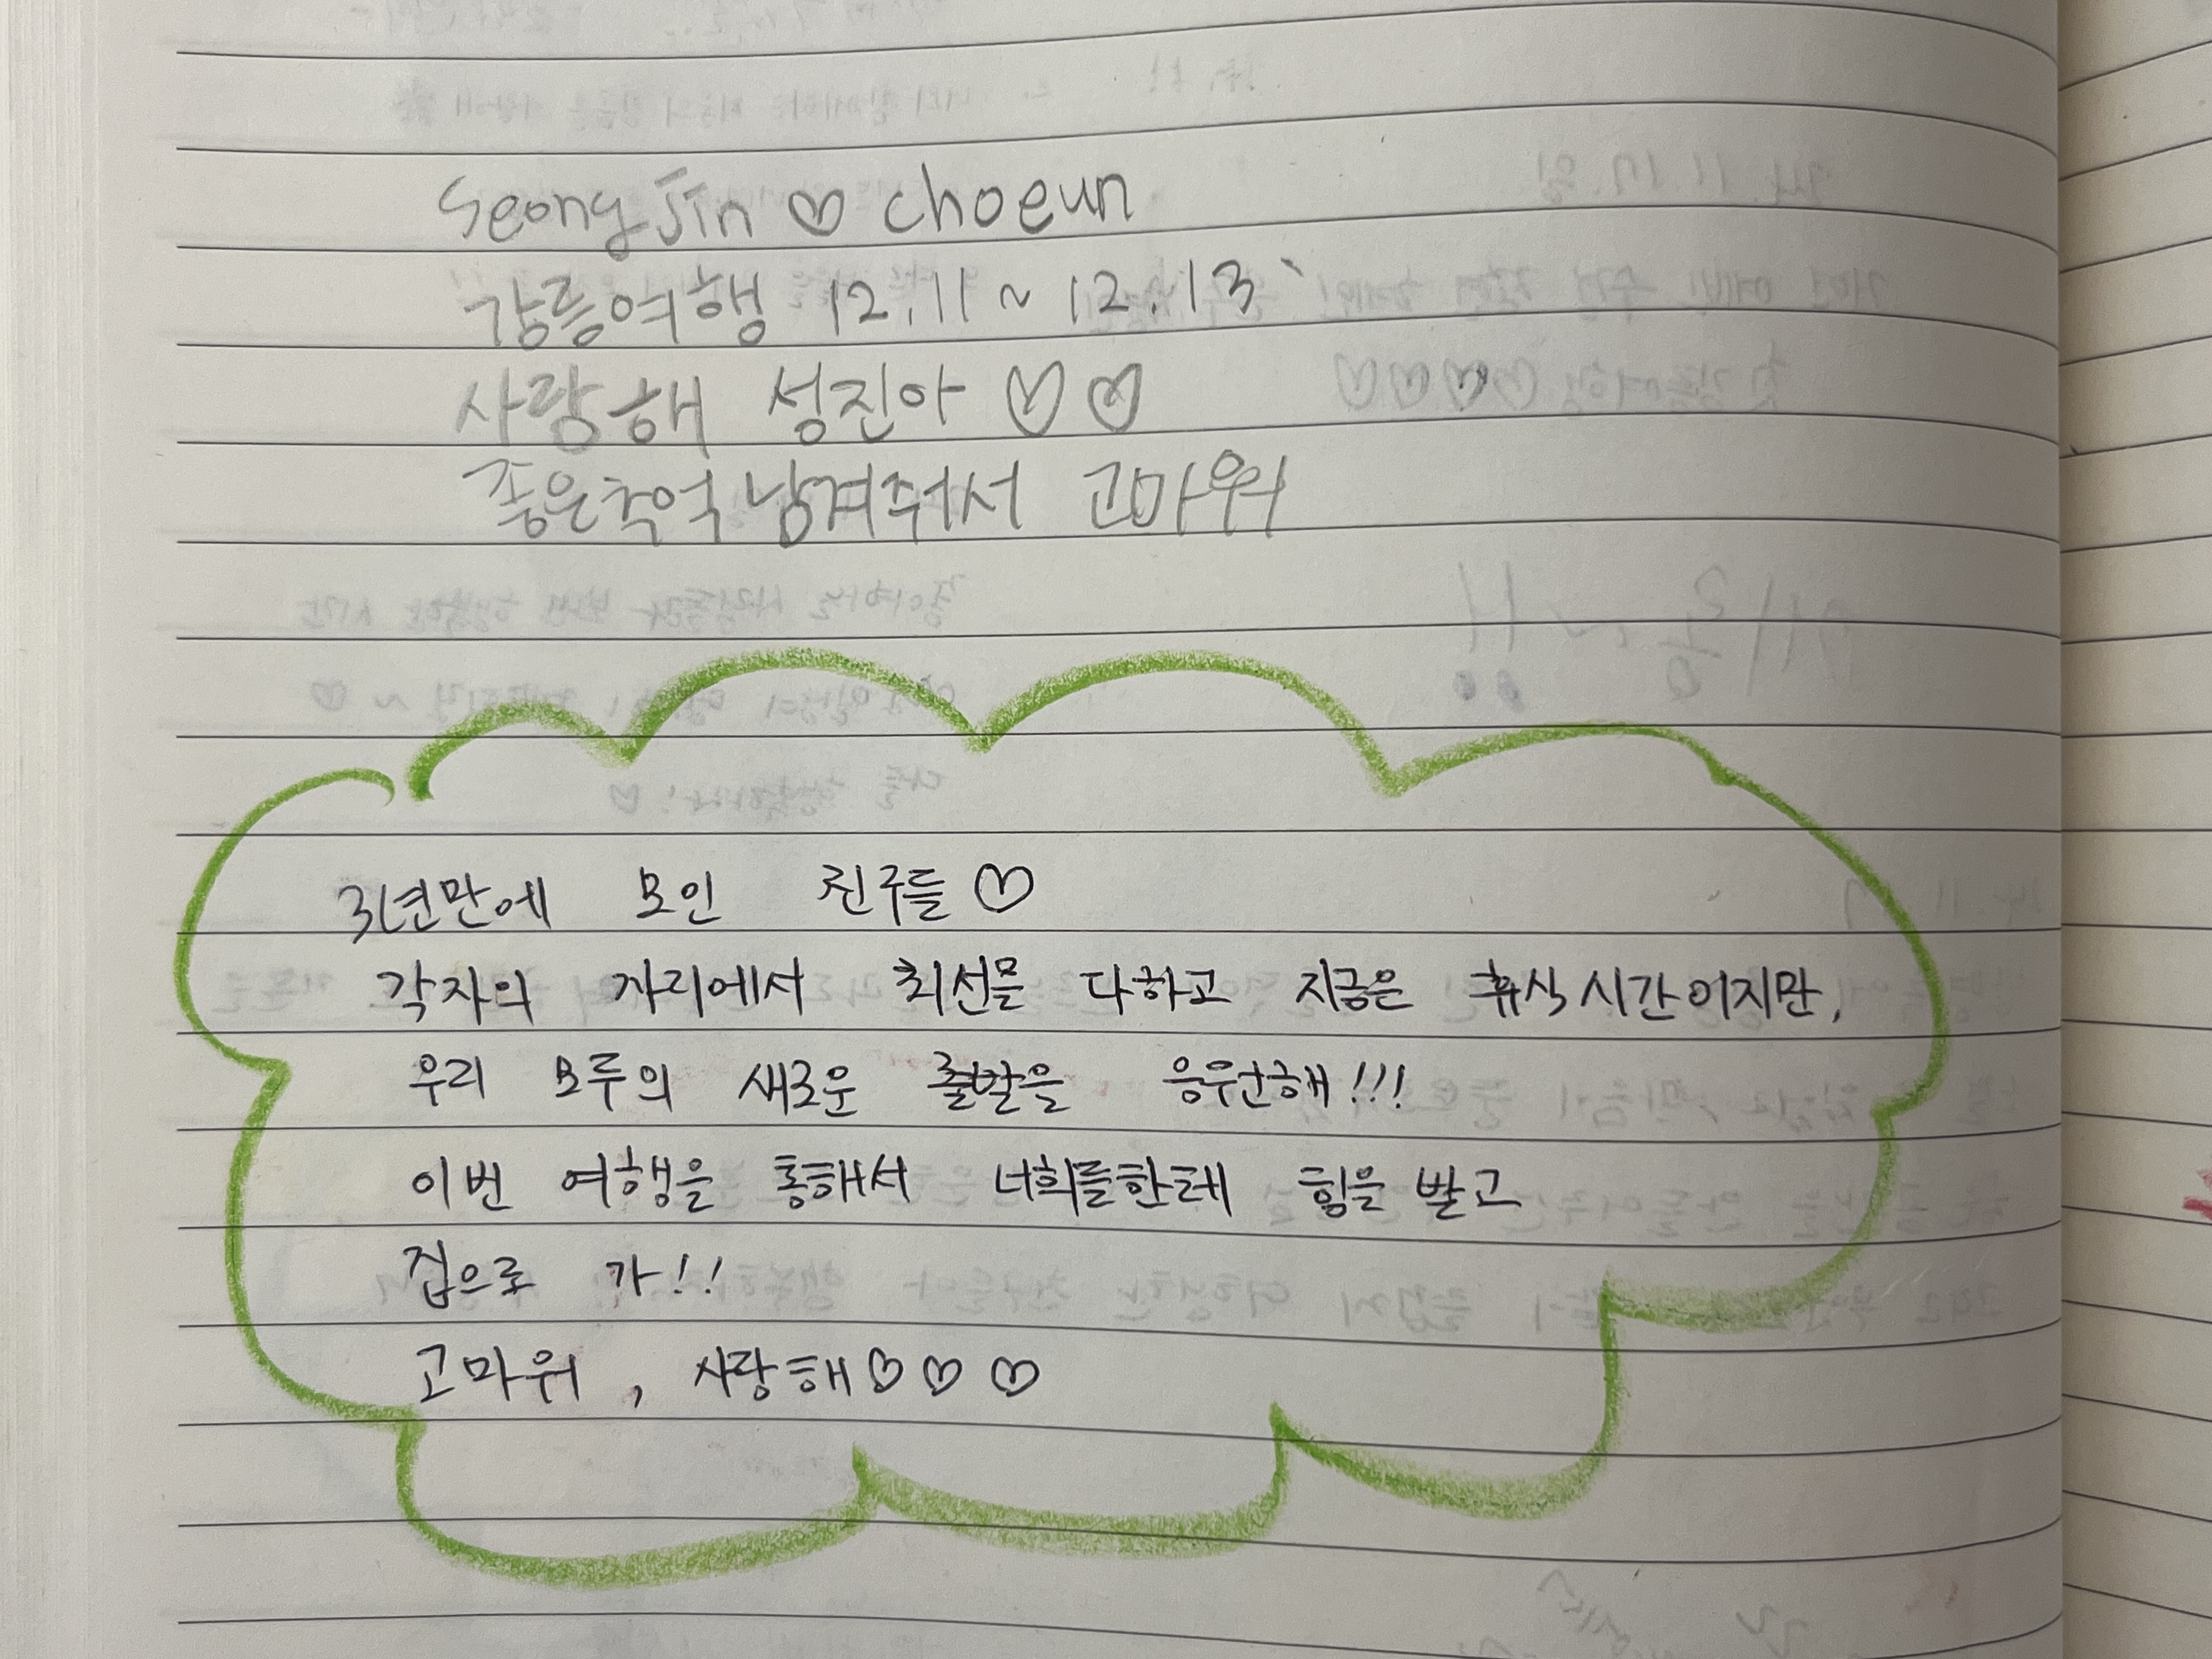 Seongjin ♡ choeun
강릉여행 12.11 ~ 12.13
사랑해 성진아 ♡♡
좋은추억남겨줘서 고마워
3년만에 모인 친구들♡
각자의 자리에서 최선을 다하고 지금은 휴식시간이지만,
우리 모두의 새로운 출발을 응원해!!!
이번 여행을 통해서 너희들한테 힘을 받고
집으로 가!!
고마워, 사랑해♡♡♡